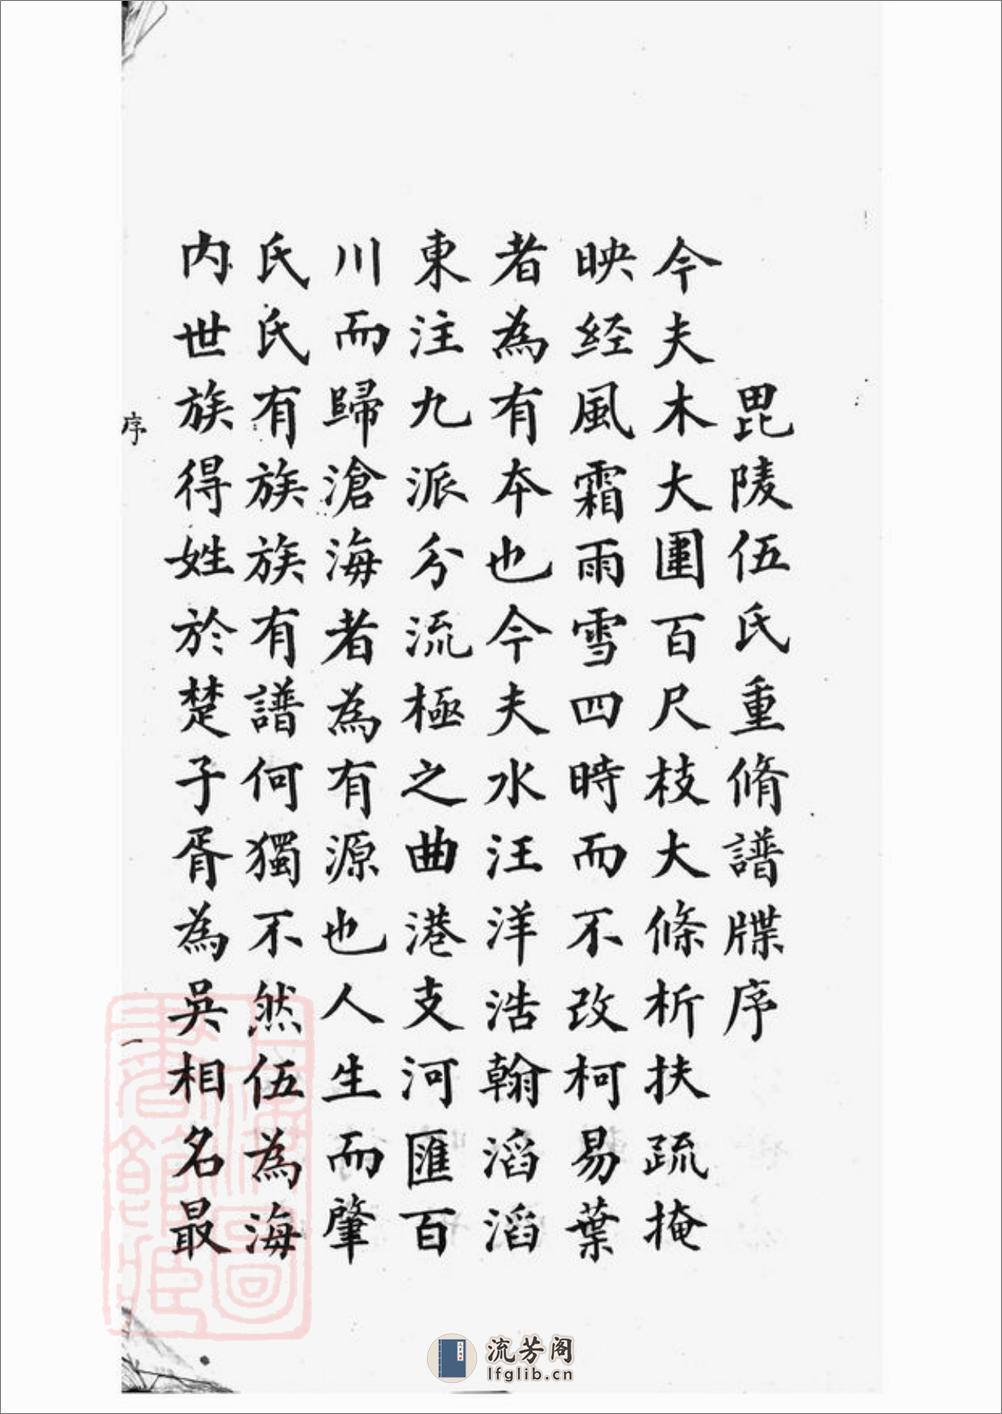 毘陵伍氏重脩譜牒序
今夫木大圍百尺枝大條析扶疏掩
映经風霜雨雪四時而不改柯易葉
者為有本也今夫水汪洋浩翰滔滔
東注九派分流極之曲港支河匯百
川而歸滄海者為有源也人生而肇
氏氏有族族有譜何獨不然伍為海
内世族得姓於楚子胥為吳相名最
序
一
上海圖書館藏
流芳阁
lfglib.cn